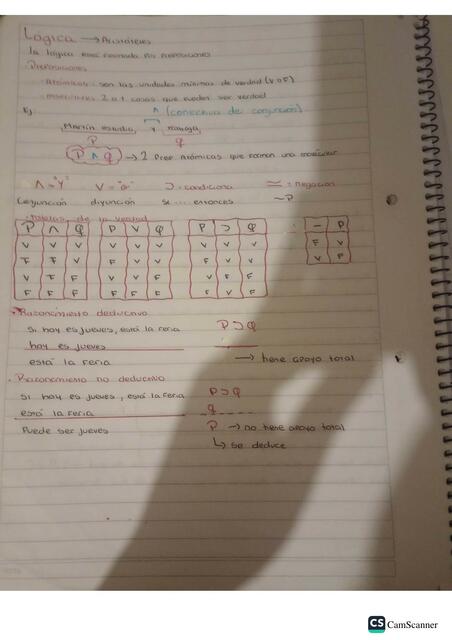 Lógica → Aristóteles
la lógica está formada por proposiciones
· Proposiciones
· Atómicas: son las unidades mínimas de verdad (V o F)
· moleculares 2 o + cosas que pueden ser verdad
Ej: ∧ (conectiva de conjunción)
Martín estudia, y trabaja
P q
P ∧ q → 2 Prop Atómicas que forman una molecular
∧ = "Y" V = "o" ⊃ = condiciona = negación
Conjunción disyunción si ... entonces ~P
· Tablas de la verdad
P ∧ Q P V Q P ⊃ Q − P
V V V V V V V V V F V
F F V F V V F V V V F
V F F V V F V F F
F F F F F F F V F
· Razonamiento deductivo
Si hoy es jueves, está la feria P ⊃ Q
hoy es jueves
está la feria → tiene apoyo total
· Razonamiento no deductivo
Si hoy es jueves, está la feria P ⊃ Q
está la feria q
Puede ser jueves P → no tiene apoyo total
↳ se deduce
CS CamScanner